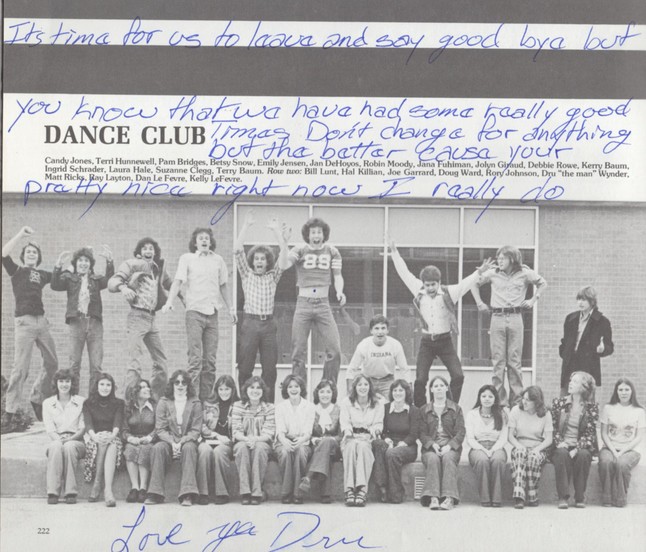 Its time for us to leave and say good bye but
you know that we have had some really good
DANCE CLUB times Don't change for anything
but the better cause your
Candy Jones, Terri Hunnewell, Pam Bridges, Betsy Snow, Emily Jensen, Jan DeHoyos, Robin Moody, Jana Fuhiman, Jolyn Giraud, Debbie Rowe, Kerry Baum,
Ingrid Schrader, Laura Hale, Suzanne Clegg, Terry Baum. Row two: Bill Lunt, Hal Killian, Joe Garrard, Doug Ward, Rory Johnson, Dru "the man" Wynder,
Matt Ricks, Ray Layton, Dan Le Fevre, Kelly LeFevre.
pretty nice right now I really do
89
INDIANA
222
Love ya Dru